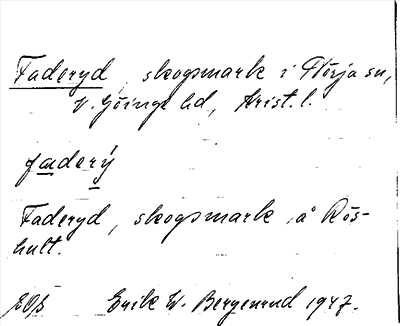 Faderyd, skogsmark i Norja sn,
V. Göinge hd, Krist. l.
faderý
Faderyd, skogsmark å Rös-
hult.
Erik W. Bergenrud 1947.